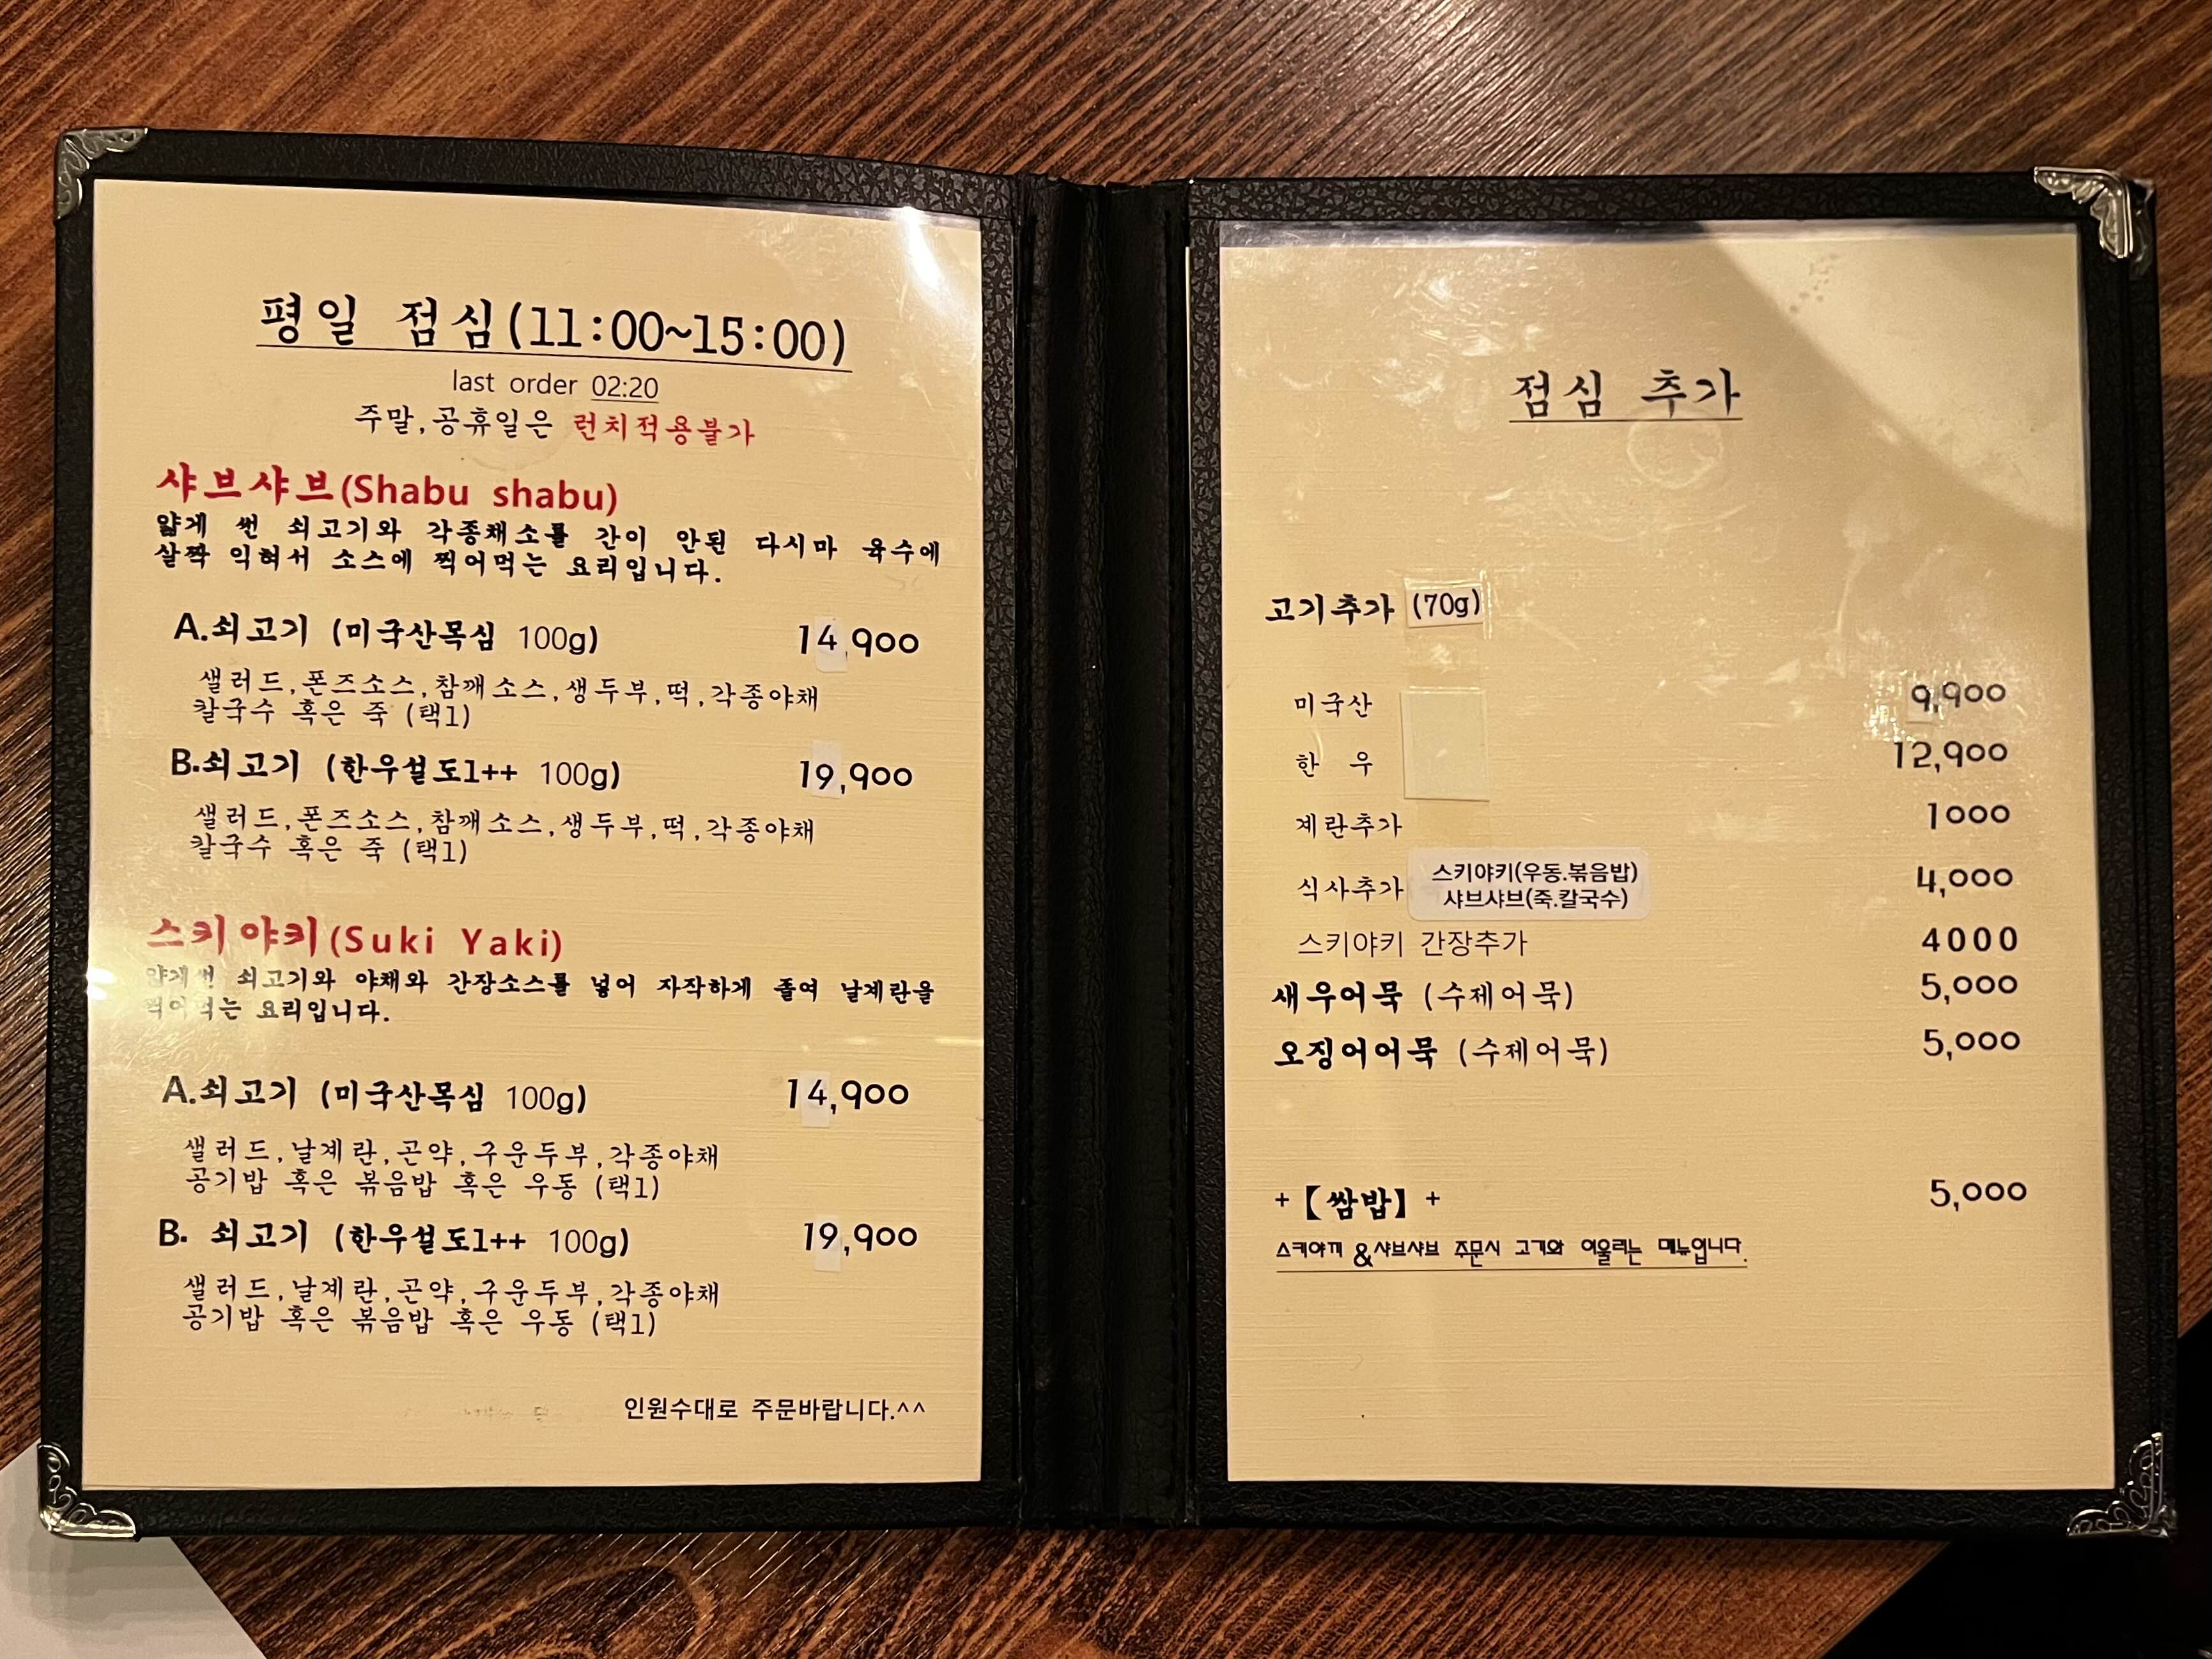 평일 점심(11:00~15:00)
last order 02:20
주말,공휴일은 런치적용불가
샤브샤브(Shabu shabu)
얇게 썬 쇠고기와 각종채소를 간이 안된 다시마 육수에
살짝 익혀서 소스에 찍어먹는 요리입니다.
A.쇠고기 (미국산목심 100g) 14,900
샐러드,폰즈소스,참깨소스,생두부,떡,각종야채
칼국수 혹은 죽 (택1)
B.쇠고기 (한우설도1++ 100g) 19,900
샐러드,폰즈소스,참깨소스,생두부,떡,각종야채
칼국수 혹은 죽 (택1)
스키야키(Suki Yaki)
얇게썬 쇠고기와 야채와 간장소스를 넣어 자작하게 졸여 날계란을
찍어먹는 요리입니다.
A.쇠고기 (미국산목심 100g) 14,900
샐러드,날계란,곤약,구운두부,각종야채
공기밥 혹은 볶음밥 혹은 우동 (택1)
B. 쇠고기 (한우설도1++ 100g) 19,900
샐러드,날계란,곤약,구운두부,각종야채
공기밥 혹은 볶음밥 혹은 우동 (택1)
인원수대로 주문바랍니다.^^
점심 추가
고기추가 (70g)
미국산 9,900
한 우 12,900
계란추가 1000
식사추가 스키야키(우동.볶음밥) 4,000
샤브샤브(죽.칼국수)
스키야키 간장추가 4000
새우어묵 (수제어묵) 5,000
오징어어묵 (수제어묵) 5,000
+【쌈밥】+ 5,000
스키야끼 &샤브샤브 주문시 고기와 어울리는 메뉴입니다.